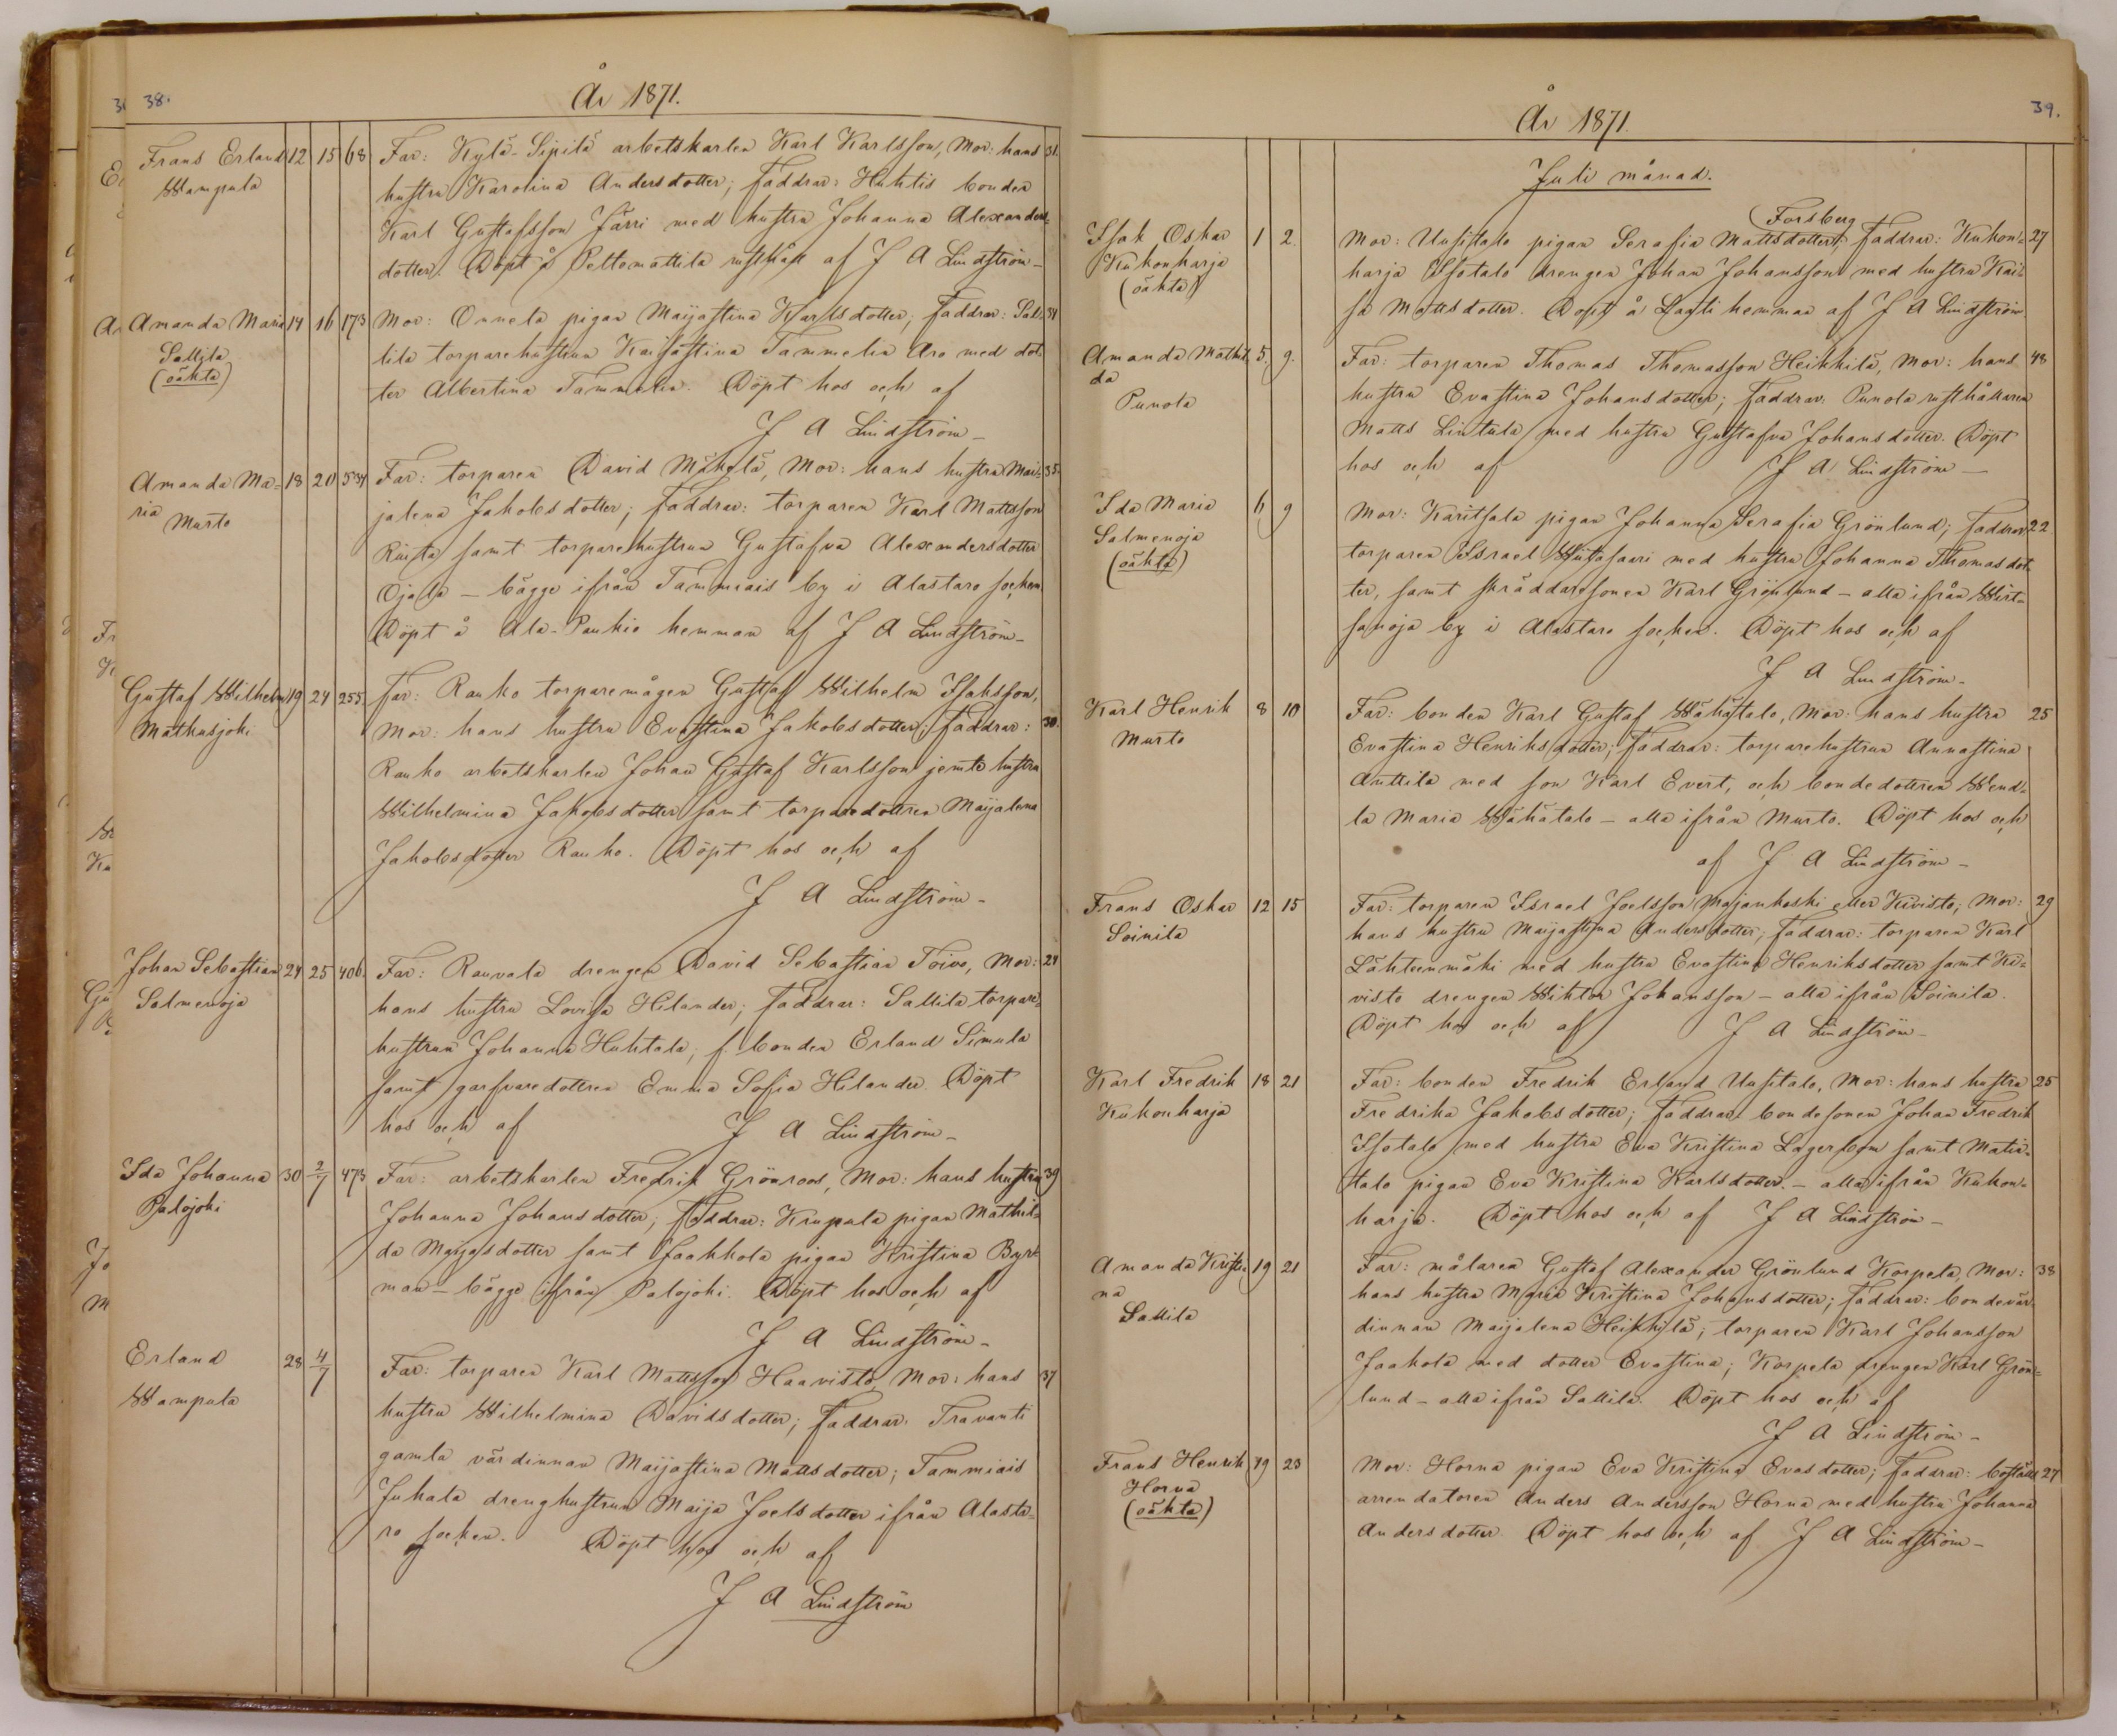 38.
År 1871.
Frans Erland 12 15 68 Far: Kylä-Sipilä arbetskarlen Karl Karlsson, Mor: hans 31.
Wampula hustru Karolina Andersdotter; Faddrar: Huhtis bonden
Karl Gustafsson Järri med hustru Johanna Alexanders-
dotter. Döpt å Peltomattila rusthåll af J A Lindström-
Amanda Maria 14 16 173 Mor: Onnela pigan Maijastina Karlsdotter; Faddrar: Sal-
Sallila lila torparehustrun Kaisastina Tammelin Aro med dot-
(oäkta) ter Albertina Tammelin. Döpt hos och af
J A Lindström-
Amanda Ma- 18 20 534 Far: torparen David Mäkelä, Mor: hans hustru Mai- 35.
ria jalena Jakobsdotter; Faddrar: torparen Karl Mattsson
Murto samt torparehustrun Gustafva Alexandersdotter
Ojala - bägge ifrån Tammiais by i Alastaro socken.
Döpt å Ala-Paukio hemman af J A Lindström-
Gustaf Wilhelm 19 24 255. Far: Rauko torparemågen Gustaf Wilhelm Isaksson,
Mathusjoki Mor: hans hustru Evastina Jakobsdotter; Faddrar: 30.
Rauko arbetskarlen Johan Gustaf Karlsson jemte hustru
Wilhelmina Jakobsdotter samt torparedottren Maijalena
Jakobsdotter Rauko. Döpt hos och af
J A Lindström-
Johan Sebastian 24 25 406. Far: Rauvala drengen David Sebastian Toivo, Mor: 24
Salmenoja hans hustru Lovisa Hilander; Faddrar: Sallila torpare-
hustrun Johanna Huhtala, f. bonden Erland Simula
samt garfvaredottren Emma Sofia Hilander. Döpt
hos och af J A Lindström-
Ida Johanna 30 2/7 473 Far: arbetskarlen Fredrik Grönroos, Mor: hans hustru 39
Palojoki Johanna Johansdotter; Faddrar: Krupula pigan Mathil-
da Maijasdotter samt Jaakkola pigan Kristina Byrk-
man - bägge ifrån Palojoki. Döpt hos och af
J A Lindström-
Erland 28 4/7 Far: torparen Karl Mattsson Haavisto, Mor: hans 37
Wampula hustru Wilhelmina Davidsdotter; Faddrar: Travanti
gamla värdinnan Maijastina Mattsdotter; Tammiais
Juhala drenghustrun Maija Joelsdotter ifrån Alasta-
ro socken. Döpt hos och af
J A Lindström
39.
År 1871.
Juli månad.
Forsberg
Isak Oskar 1 2. Mor: Uusitalo pigan Serafia Mattsdotter; Faddrar: Kukon- 27
Kukonharja harja Isotalo drengen Johan Johansson med hustru Kai-
(oäkta) sa Mattsdotter. Döpt å Laati hemman af J A Lindström.
Amanda Mathil- 5 9. Far: torparen Thomas Thomasson Heikkilä, Mor: hans 48
da hustru Evastina Johansdotter; Faddrar: Punola rusthållaren
Punola Matts Lintula med hustru Gustafva Johansdotter. Döpt
hos och af J A Lindström-
Ida Maria 6 9 Mor: Karitsala pigan Johanna Serafia Grönlund; Faddrar 22
Salmenoja torparen Israel Huhtasaari med hustru Johanna Thomasdot-
(oäkta) ter, samt skräddaresonen Karl Grönlund - alla ifrån Wirt-
sanoja by i Alastaro socken. Döpt hos och af
J A Lindström-
Karl Henrik 8 10 Far: bonden Karl Gustaf Wähätalo, Mor: hans hustru 25
Murto Evastina Henriksdotter; Faddrar: torparehustrun Annastina
Anttila med son Karl Evert, och bondedottren Wend-
la Maria Wähätalo - alla ifrån Murto. Döpt hos och
af J A Lindström-
Frans Oskar 12 15 Far: torparen Israel Joelsson Majankoski eller Kivisto, Mor: 29
Soinila hans hustru Maijastina Andersdotter; Faddrar: torparen Karl
Lähteenmäki med hustru Evastina Henriksdotter samt Ki-
visto drengen Wiktor Johansson - alla ifrån Soinila.
Döpt hos och af J A Lindström-
Karl Fredrik 18 21 Far: bonden Fredrik Erland Uusitalo, Mor: hans hustru 25
Kukonharja Fredrika Jakobsdotter; Faddrar: bondesonen Johan Fredrik
Isotalo med hustru Eva Kristina Lagerbom samt Mati-
talo pigan Eva Kristina Karlsdotter. - alla ifrån Kukon-
harja. Döpt hos och af J A Lindström-
Amanda Kristi- 19 21 Far: målaren Gustaf Alexander Grönlund Korpela, Mor: 38
na hans hustru Maria Kristina Johansdotter; Faddrar: bondevär-
Sallila dinnan Maijalena Heikkilä; torparen Karl Johansson
Jaakola med dotter Evastina; Korpela drengen Karl Grön-
lund - alla ifrån Sallila. Döpt hos och af
J A Lindström-
Frans Henrik 19 23 Mor: Horna pigan Eva Kristina Evasdotter; Faddrar: boställs 27
Horna arrendatoren Anders Andersson Horna med hustru Johanna
(oäkta) Andersdotter. Döpt hos och af J A Lindström-